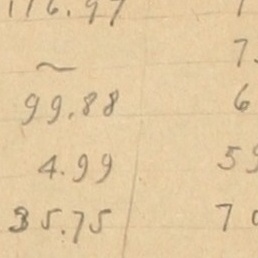 116.97
~ 7.
99.88 6
4.99 59
35.75 70